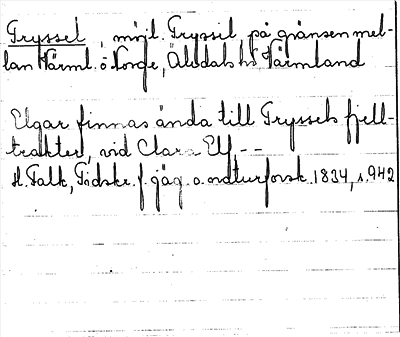 Tryssel, möjl. Tryssil, på gränsen mel-
lan Värml. o Norge, Älvdals hd Värmland
Elgar finnas ända till Tryssels fjell-
trakter, vid Clara Elf, --
H. Falk, Tidskr. f. jäg. o. naturforsk. 1834, s. 942